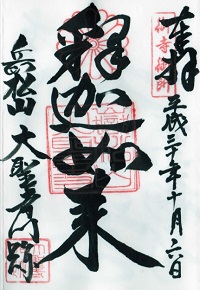 奉拝
御寺御所
平成三十年十月六日
釋迦如来
岳松山 大聖寺門跡